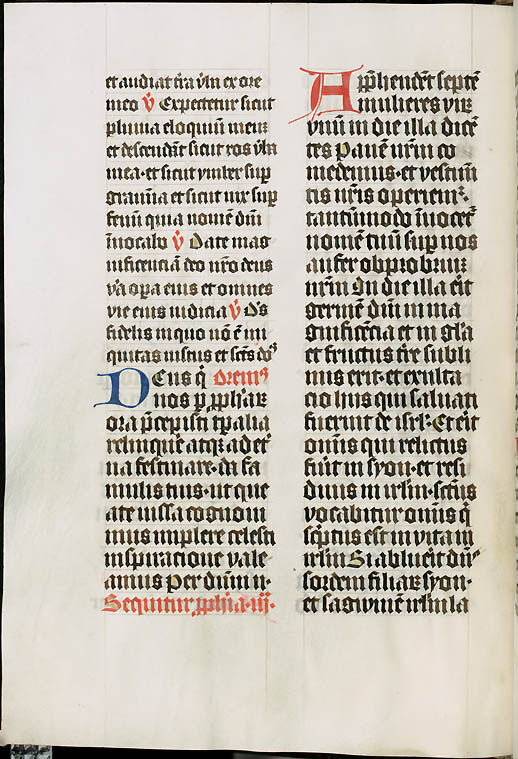 et audiat t̄ra v̄ba ex ore
meo v̄ Expectetur sicut
pluuia eloquiū meū
et descendāt sicut ros v̄ba
mea · et sicut ymber sup̄
gramīa et sicut nix sup̄
fenū quia nomē dn̄i
īuocabo v̄ Date mag
nificenciā deo nr̄o deus
v̄a oꝑa eius et omnes
vie eius iudicia v̄ Ds̄
fidelis in quo nō ē ini
quitas iustus et sctūs dn̄s
Deus q̄ Oremꝰ
nos ꝑ ꝓphaꝝ
ora p̄cepisti tꝑalia
relinquē̄ atqꝫ ad et̄
na festinare · da fa
mulis tuis · ut que
a te iussa cognoui
mus implere celesti
inspiratione vale
amus per dūm n̄ ·
Sequitur ꝓphīa · iij ·
Apphendēt septē
mulieres vir
vnū in die illa dicē
tes Panē nr̄m co
medemus · et vestimē
tis nr̄is operiemꝛ ·
tantūmodo īuocet̄
nomē tuū sup̄ nos
aufer obprobriū
nr̄m In die illa eīt
germē dn̄i in ma
gnificēcia et in gl̄a
et fructus t̄re subli
mis erit · et exulta
cio hiis qui saluati
fuerint de isrl̄ · Et eīt
omīs qui relictus
fūit in syon · et resi
duus in irlm̄ · sctūs
vocabitur omīs q̄
sc̄ptus est in vita in
irlm̄ Si abluēit dn̄s
sordem filiaꝝ syon ·
et sāgwinē irlm̄ la